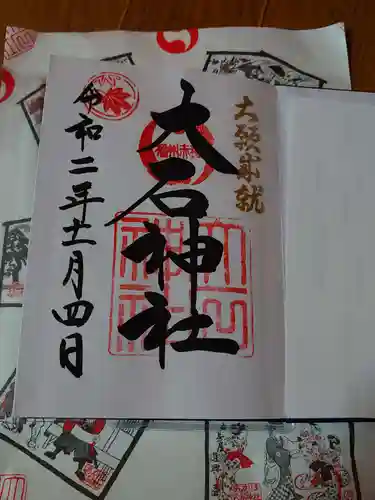 大願成就
播州赤穂
大石神社
令和二年十一月四日